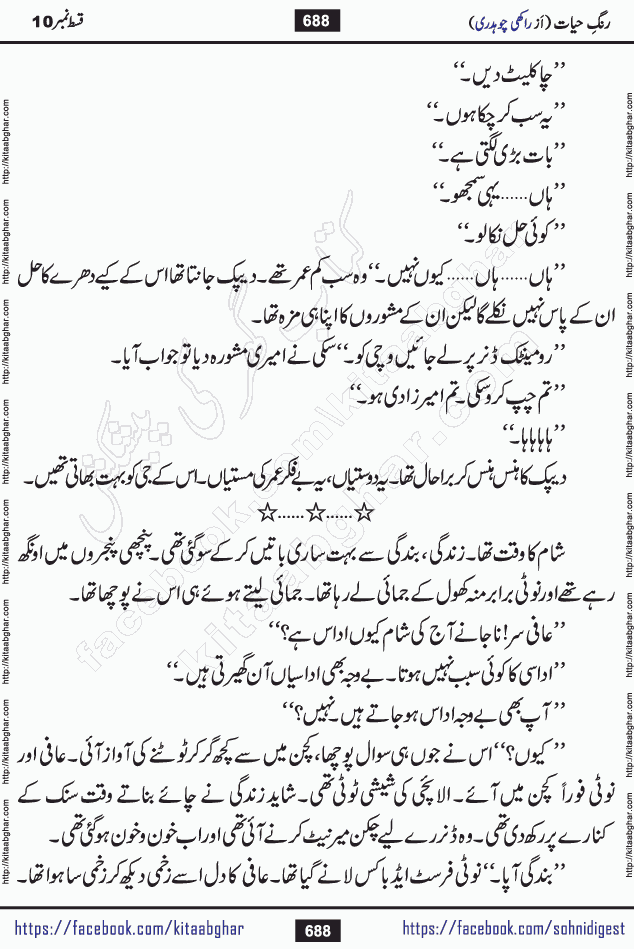 رنگِ حیات (از راکھی چوہدری)
688
قسط نمبر10
’’چاکلیٹ دیں۔‘‘
’’یہ سب کر چکا ہوں۔‘‘
’’بات بڑی لگتی ہے۔‘‘
’’ہاں......یہی سمجھو۔‘‘
’’کوئی حل نکالو۔‘‘
’’ہاں......ہاں......کیوں نہیں۔‘‘ وہ سب کم عمر تھے۔ دیپک جانتا تھا اس کے کیے دھرے کا حل
ان کے پاس نہیں نکلے گا لیکن ان کے مشوروں کا اپنا ہی مزہ تھا۔
’’رومینٹک ڈنر پر لے جائیں وچی کو۔‘‘ سکی نے امیری مشورہ دیا تو جواب آیا۔
’’تم چپ کرو سکی۔ تم امیر زادی ہو۔‘‘
’’ہاہاہاہا۔‘‘
دیپک کا ہنس ہنس کر برا حال تھا۔ یہ دوستیاں، یہ بے فکر عمر کی مستیاں۔ اس کے جی کو بہت بھاتی تھیں۔
☆......☆......☆
شام کا وقت تھا۔ زندگی، بندگی سے بہت ساری باتیں کر کے سو گئی تھی۔ پنچھی پنجروں میں اونگھ
رہے تھے اور نوٹی برابر منہ کھول کے جمائی لے رہا تھا۔ جمائی لیتے ہوئے ہی اس نے پوچھا تھا۔
’’عافی سر! نا جانے آج کی شام کیوں اداس ہے؟‘‘
’’اداسی کا کوئی سبب نہیں ہوتا۔ بے وجہ بھی اداسیاں آن گھیرتی ہیں۔‘‘
’’آپ بھی بے وجہ اداس ہو جاتے ہیں۔ نہیں؟‘‘
’’کیوں؟‘‘ اس نے جوں ہی سوال پوچھا، کچن میں سے کچھ گر کر ٹوٹنے کی آواز آئی۔ عافی اور
نوٹی فوراً کچن میں آئے۔ الائچی کی شیشی ٹوٹی تھی۔ شاید زندگی نے چائے بناتے وقت سنک کے
کنارے پر رکھ دی تھی۔ وہ ڈنر کے لیے چکن میرنیٹ کرنے آئی تھی اور اب خون و خون ہو گئی تھی۔
’’بندگی آپا۔‘‘ نوٹی فرسٹ ایڈ باکس لانے گیا تھا۔ عافی کا دل اسے زخمی دیکھ کر زخمی سا ہوا تھا۔
https://facebook.com/kitaabghar
688
https://facebook.com/sohnidigest
http://kitaabghar.com http://kitaabghar.com http://kitaabghar.com http://kitaabghar.com http://kitaabghar.com http://kitaabghar.com http://kitaabghar.com http://kitaabghar.com
http://kitaabghar.com http://kitaabghar.com http://kitaabghar.com http://kitaabghar.com http://kitaabghar.com http://kitaabghar.com http://kitaabghar.com http://kitaabghar.com
کتاب گھر کی پیشکش
facebook.com/kitaabghar
kitaabghar.com